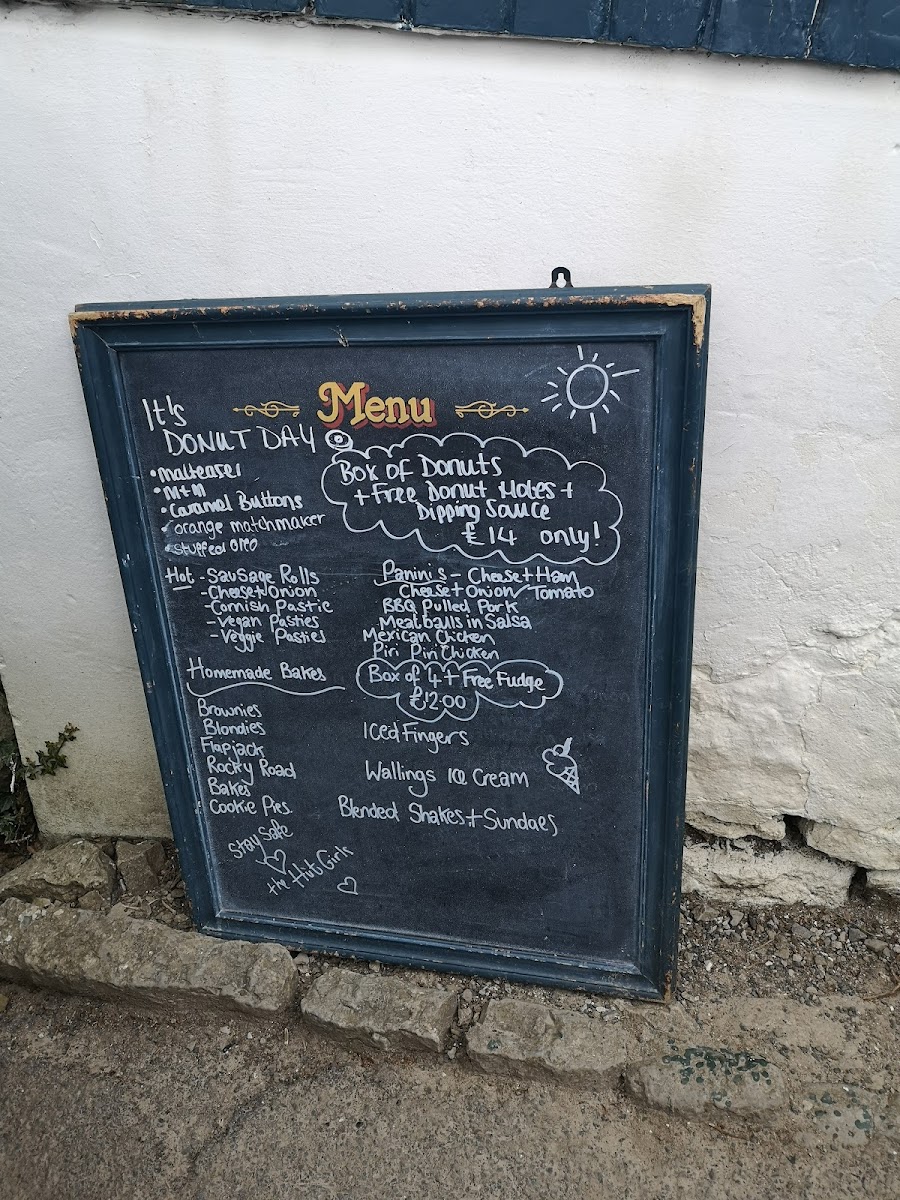 Menu
It's
DONUT DAY
• malteaser
• M+M
• Caramel Buttons
• orange matchmaker
• stuffed oreo
Box of Donuts
+ Free Donut Holes +
Dipping Sauce
£14 only!
Hot - Sausage Rolls
- Cheese+Onion
- Cornish Pastie
- Vegan Pasties
- Veggie Pasties
Panini's - Cheese + Ham
Cheese + Onion / Tomato
BBQ Pulled Pork
Meatballs in Salsa
Mexican Chicken
Piri Piri Chicken
Homemade Bakes
Box of 4 + Free Fudge
£12.00
Brownies
Blondies
Flapjack
Rocky Road
Bakes
Cookie Pies.
Iced Fingers
Wallings Ice Cream
Blended Shakes + Sundaes
Stay Safe
the Hub Girls